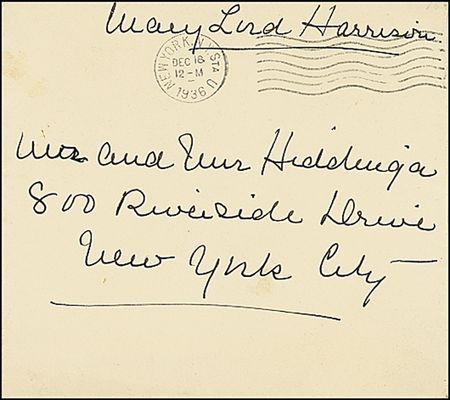 Mary Lord Harrison
NEW YORK, N.Y. STA U
DEC 16
12-M
1936
Mr and Mrs Hiddinga
800 Riverside Drive
New York City